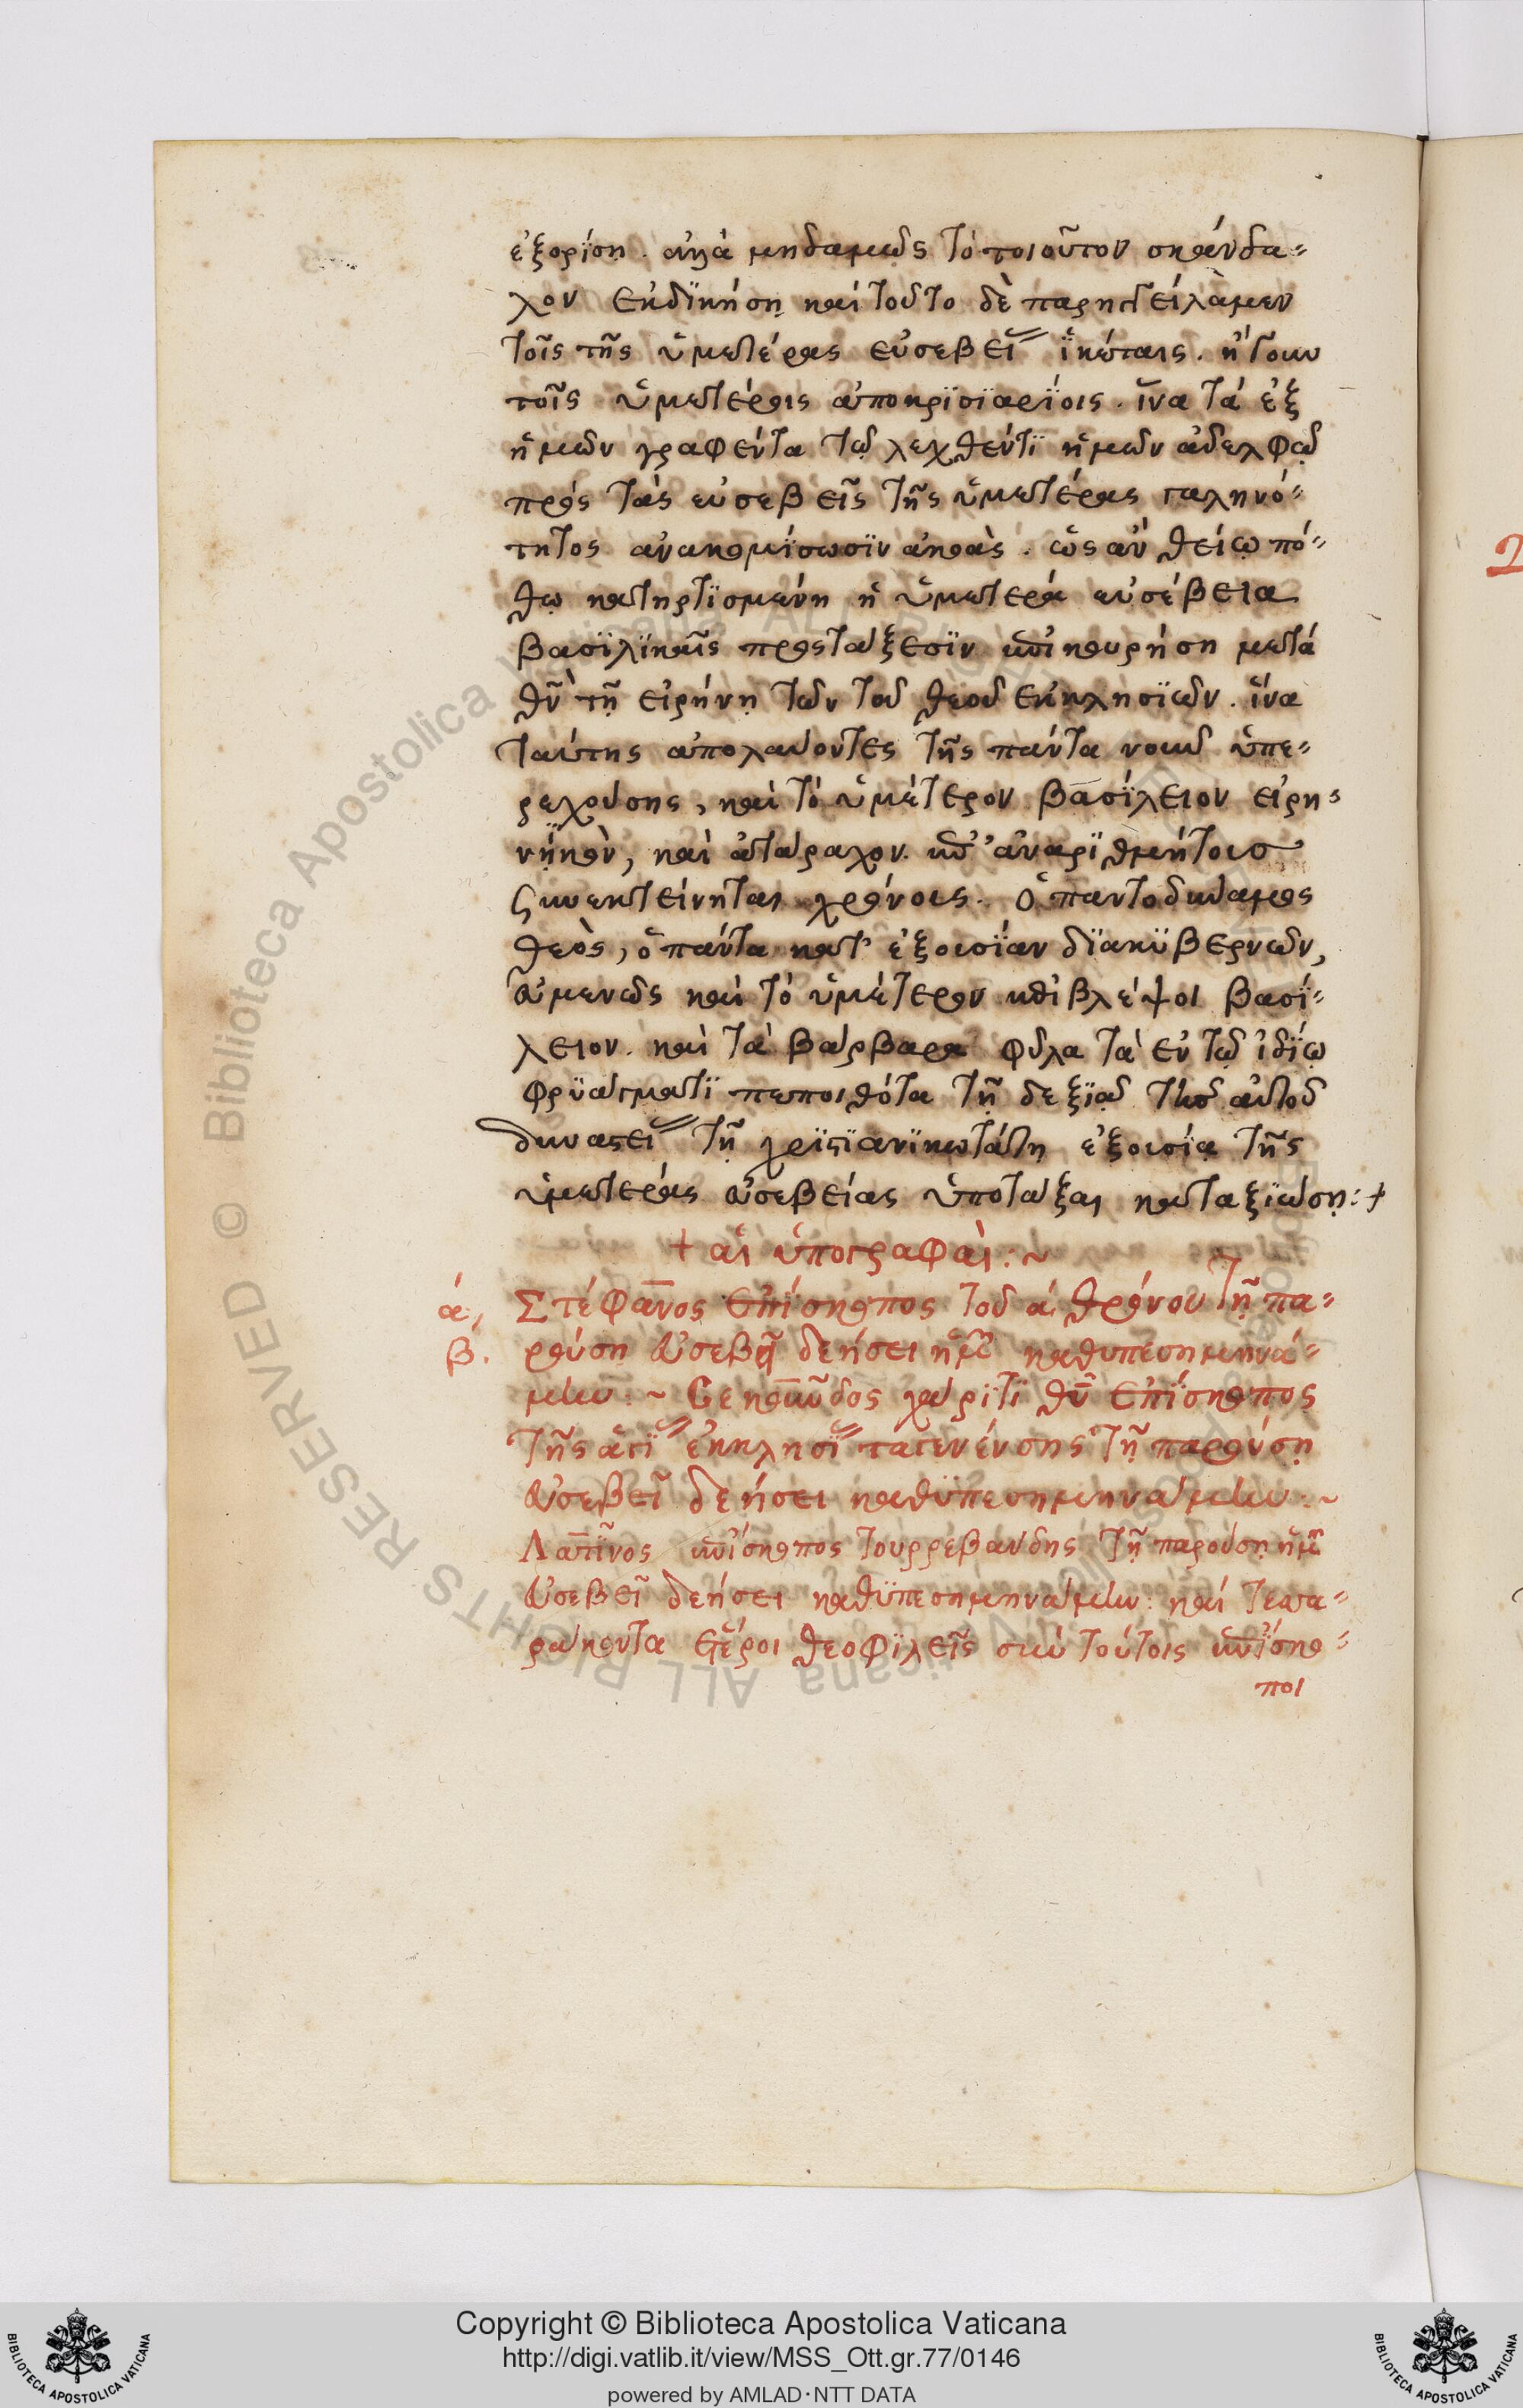 ἐξορίση. ἀλλὰ μηδαμῶς τὸ τοιοῦτον σκάνδα=
λον ἐκδϊκήση καὶ τοῦτο δὲ παρηγγείλαμεν
τοῖς τῆς ὑμετέρας εὐσεβεί ϊκέταις. ἤγουν
τοῖς ὑμετέροις ἀποκρϊσϊαρίοις. ἵνα τὰ ἐξ
ἡμῶν γραφέντα τῷ λεχθέντϊ ἡμῶν ἀδελφῷ
πρὸς τὰς εὐσεβεῖς τῆς ὑμετέρας γαληνό=
τητος ἀνακομίσωσϊν ἀκοὰς. ὡς ἂν θείῳ πό=
θῳ κατηρτϊσμένη ἡ ὑμετέρα εὐσέβεια
βασϊλϊκαῖς προστάξεσϊν ἐπικουρήση μετά
θν τῇ εἰρήνῃ τῶν τοῦ θεοῦ ἐκκλησϊῶν. ἵνα
ταύτης ἀπολαύοντες τῆς πάντα νοῦν ὑπε=
ρεχούσης, καὶ τὸ ὑμέτερον βασίλειον εἰρη=
νηκὸν, καὶ ἀτάραχον. ἐπ' ἀναρϊθμήτοις
συνεκτείνηται χρόνοις. ὁ παντοδύναμος
θεὸς, ὁ πάντα κατ' ἐξουσίαν δϊακϋβερνῶν,
εὐμενῶς καὶ τὸ ὑμέτερον ἐπιβλέψοι βασϊ=
λειον. καὶ τὰ βάρβαρα φῦλα τὰ ἐν τῷ ἰδίῳ
φρϋάγματϊ πεποιθότα τῇ δεξϊᾷ τῆς αὐτοῦ
δυναστεί τῇ χρϊστϊανϊκωτάτη ἐξουσίᾳ τῆς
ὑμετέρας εὐσεβείας ὑποτάξαι καταξϊώση:+
+ αἱ ὑπογραφαὶ:~
ά, Στέφανος ἐπίσκοπος τοῦ ά θρόνου τῇ πα=
β. ρούση εὐσεβῆ δεήσει ἡμ καθυπεσημηνά=
μην:~ Σεκοῦνδος χάρϊτϊ θυ ἐπίσκοπος
τῆς ἁγϊ ἐκκλησϊ ταγενένσης τῇ παρούσῃ
εὐσεβεῖ δεήσει καθϋπεσημηνάμην:~
Λαπῖνος ἐπίσκοπος τουρρεβάνδης τῇ παρούσῃ ἡμ
εὐσεβεῖ δεήσει καθϋπεσημηνάμην: καὶ τεσσα=
ράκοντα ἕτεροι θεοφϊλεῖς σὺν τούτοις ἐπίσκο=
ποι
Copyright © Biblioteca Apostolica Vaticana
http://digi.vatlib.it/view/MSS_Ott.gr.77/0146
powered by AMLAD·NTT DATA
BIBLIOTECA APOSTOLICA VATICANA
BIBLIOTECA APOSTOLICA VATICANA